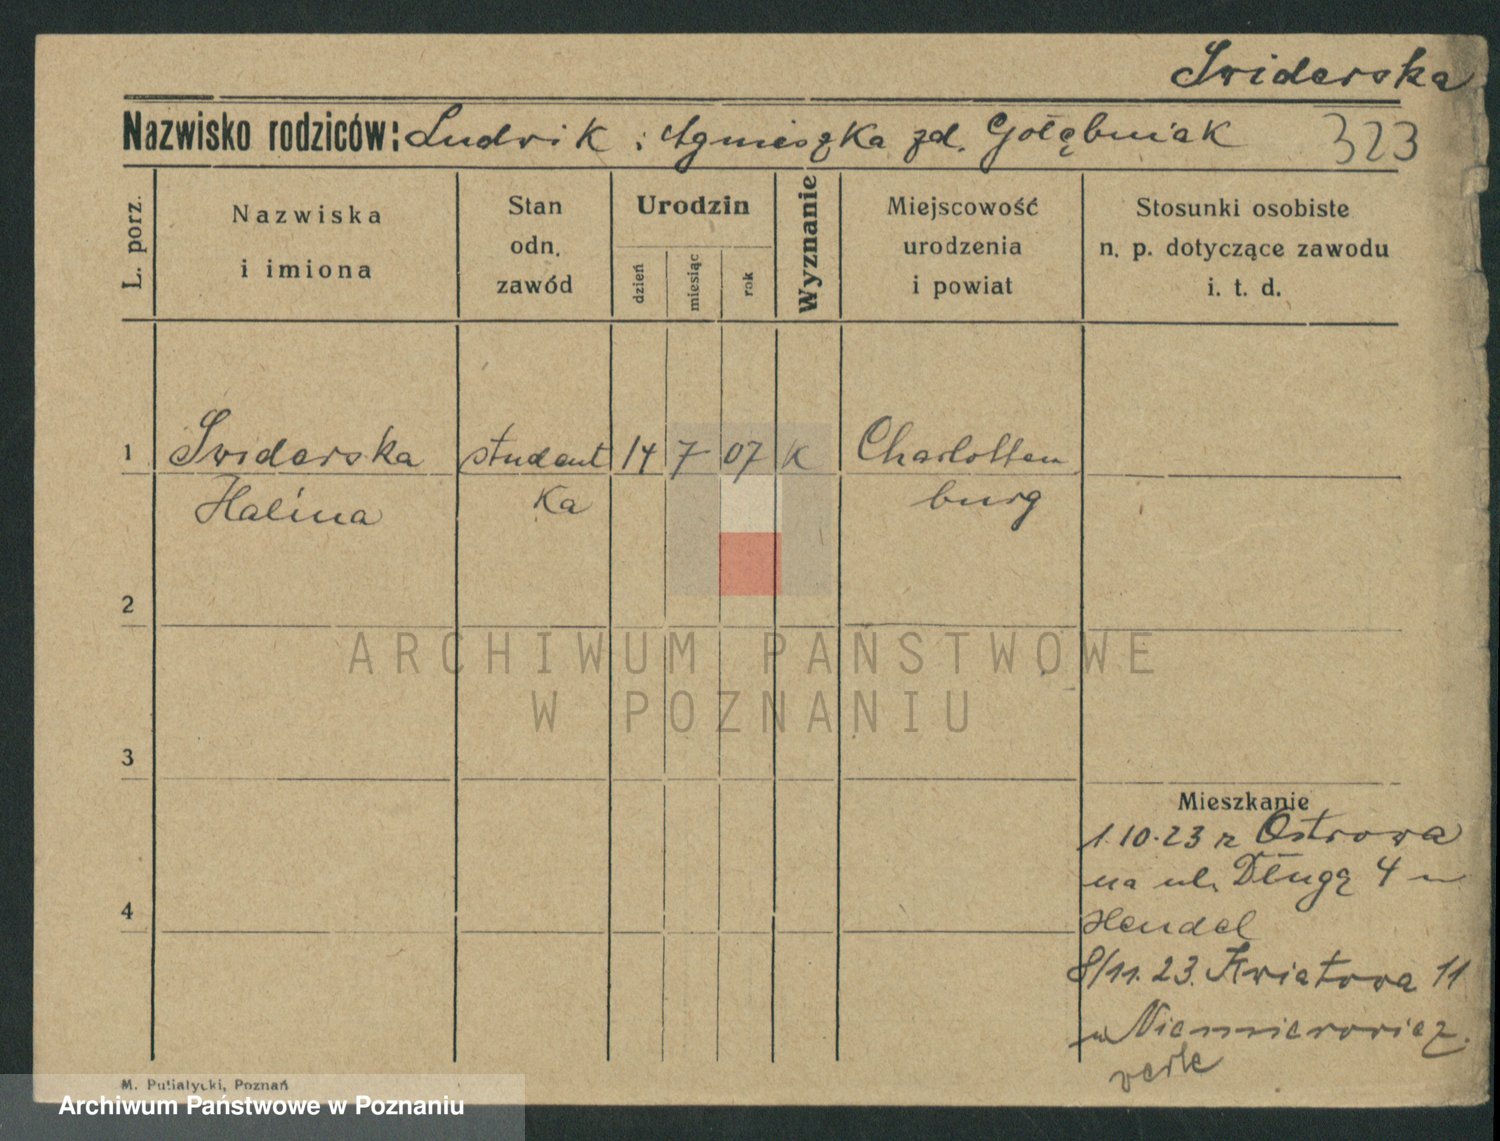 Swiderska
Nazwisko rodziców: Ludwik i Agnieszka zd. Gołębniak 323
L. porz.
Nazwiska
i imiona
Stan
odn.
zawód
Urodzin
dzień
miesiąc
rok
Wyznanie
Miejscowość
urodzenia
i powiat
Stosunki osobiste
n. p. dotyczące zawodu
i. t. d.
1 Swiderska student 14 7 07 K Charlotten
Halina ka burg
2
3
4
Mieszkanie
1.10.23 z Ostrowa
na ul. Długą 4 u
Hendel
8/11.23. Kwiatowa 11
u Niemierowicz.
verte
ARCHIWUM PAŃSTWOWE
W POZNANIU
M. Putiatycki, Poznań
Archiwum Państwowe w Poznaniu